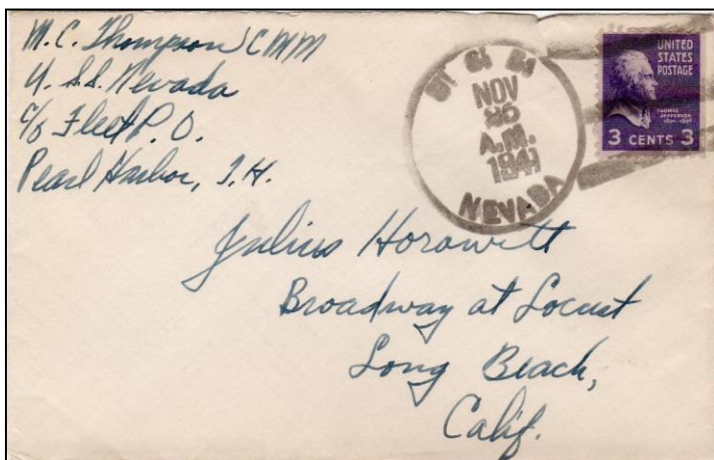 M. C. Thompson, CMM
U. S. S. Nevada
c/o Fleet P. O.
Pearl Harbor, T. H.
U. S. S.
NOV
A.M.
1941
NEVADA
UNITED
STATES
POSTAGE
THOMAS
JEFFERSON
3 CENTS 3
Julius Horowitt
Broadway at Locust
Long Beach,
Calif.